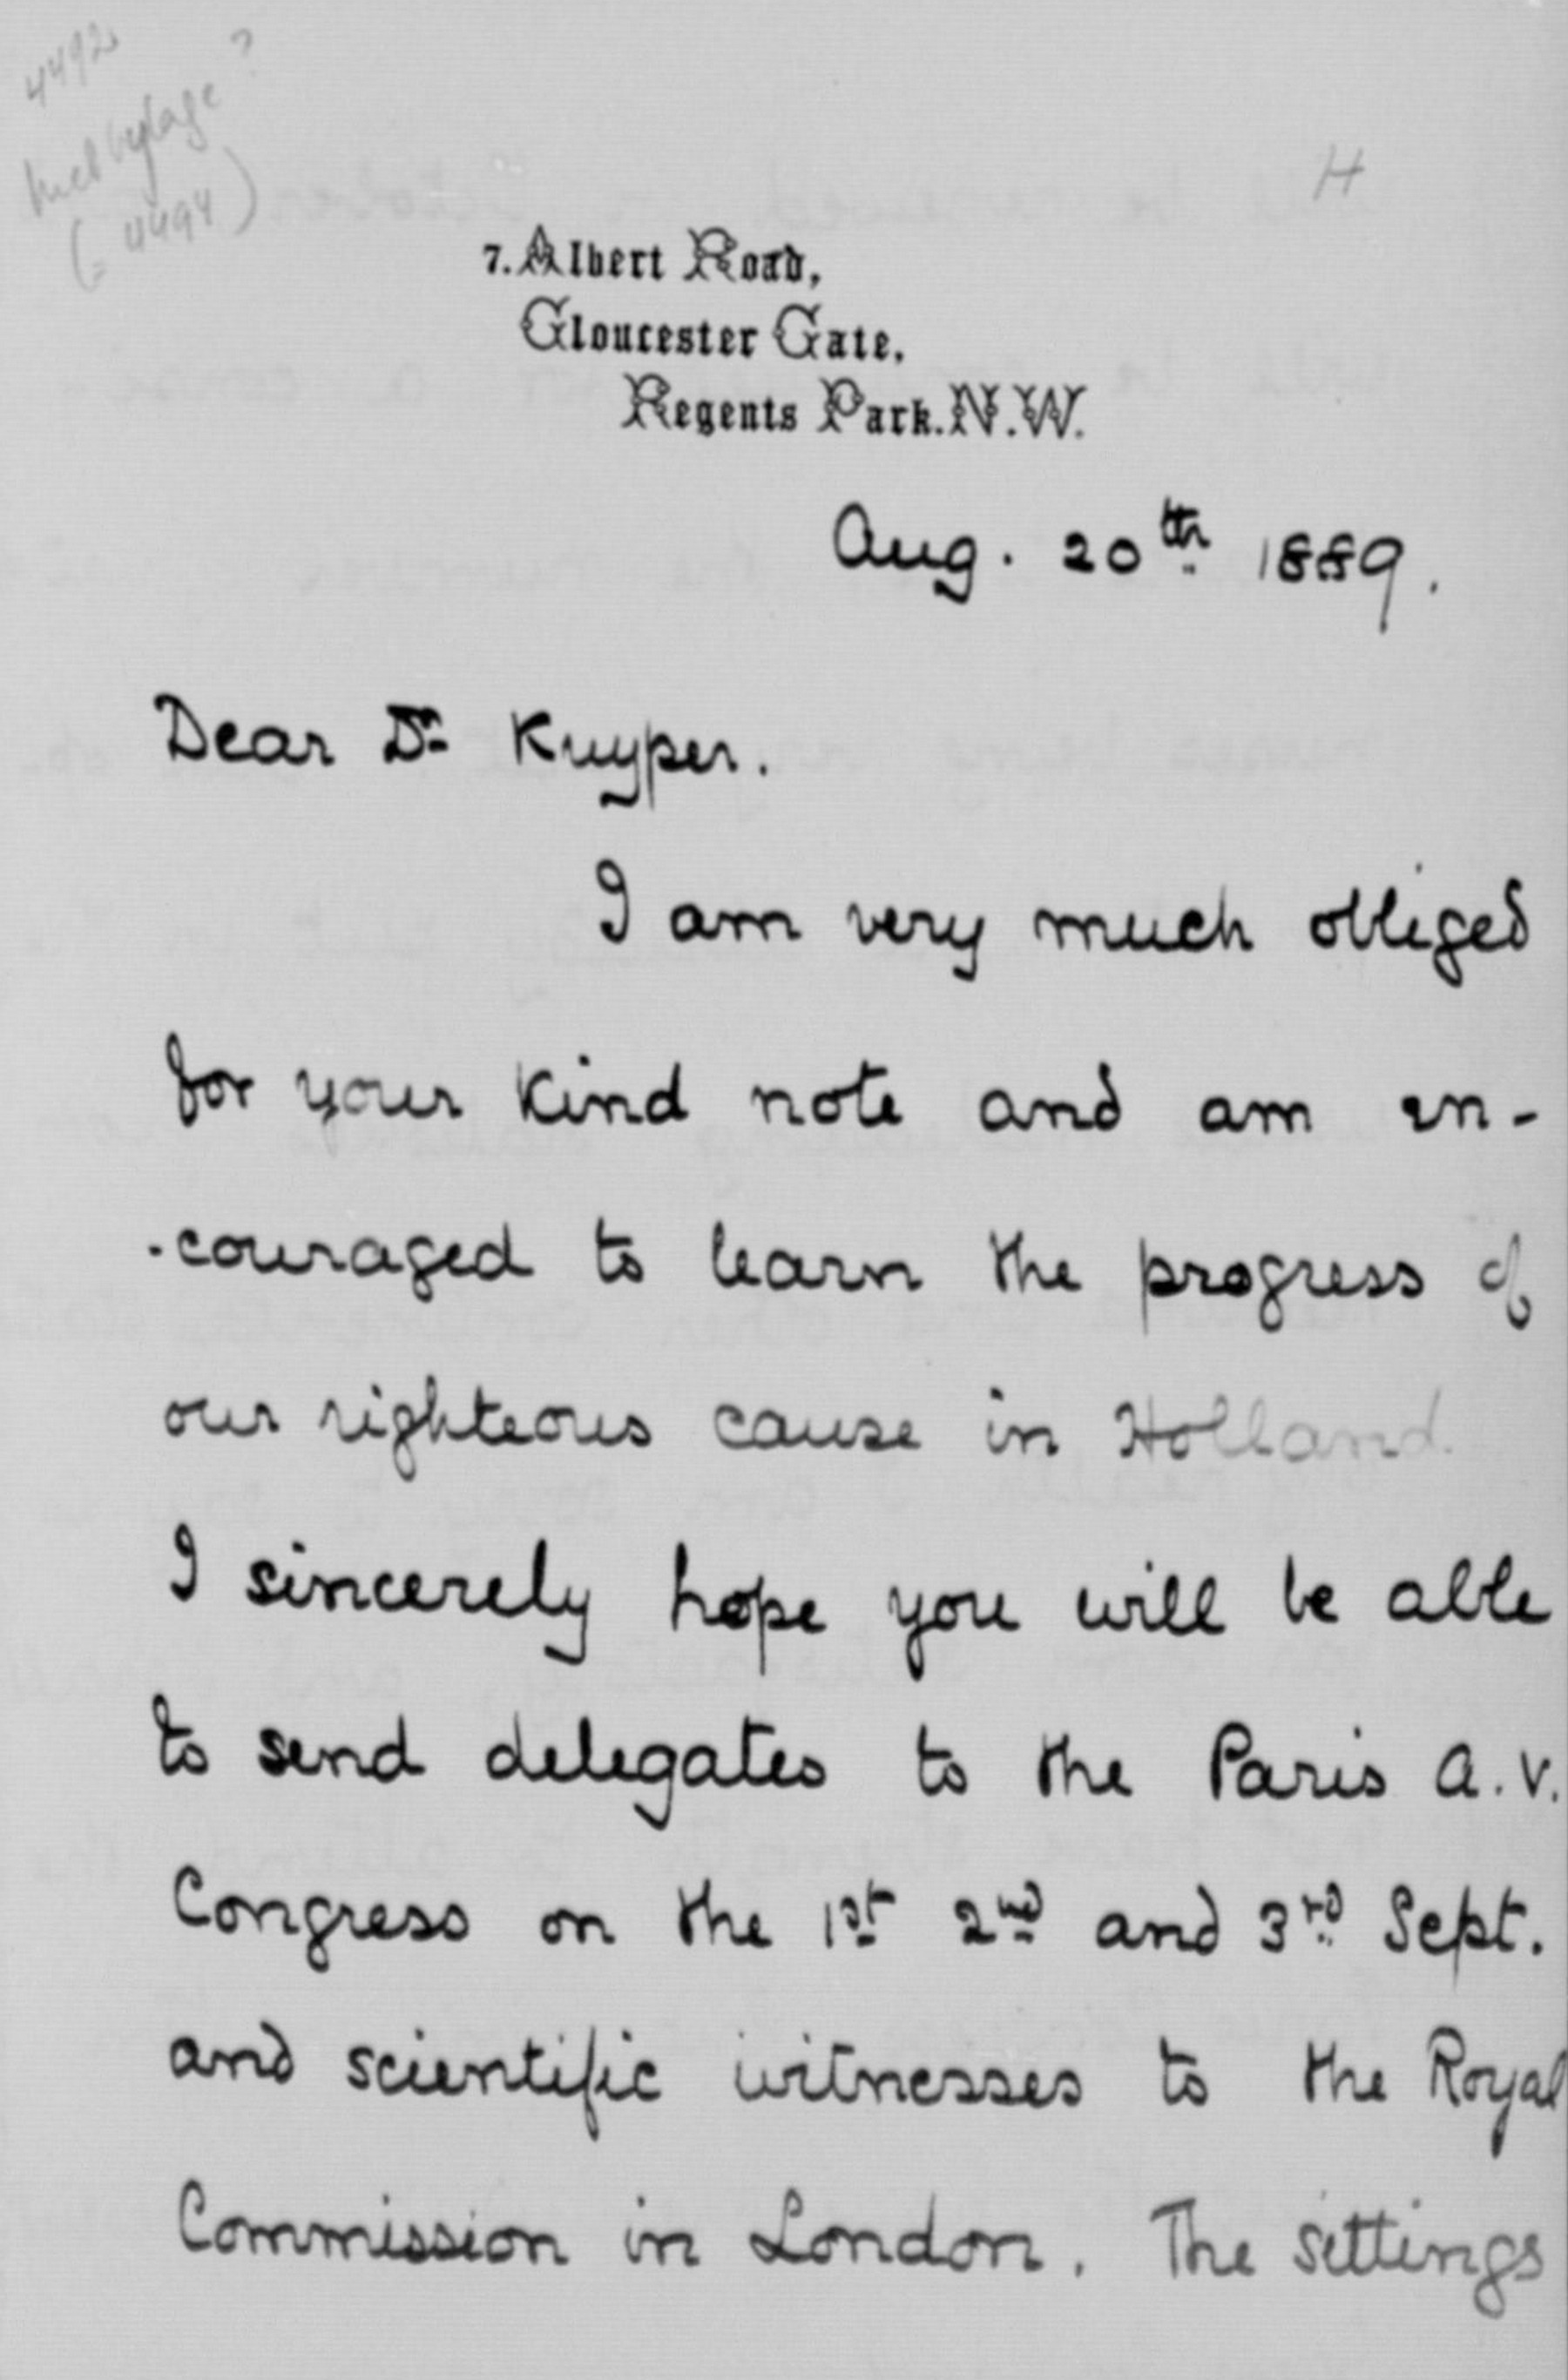 4492
met bylage?
(= 4494)
H
7. Albert Road,
Gloucester Gate,
Regents Park. N.W.
Aug. 20th 1889.
Dear Dr Kuyper.
I am very much obliged
for your kind note and am en-
-couraged to learn the progress of
our righteous cause in Holland.
I sincerely hope you will be able
to send delegates to the Paris A.V.
Congress on the 1st 2nd and 3rd Sept.
and scientific witnesses to the Royal
Commission in London. The settings